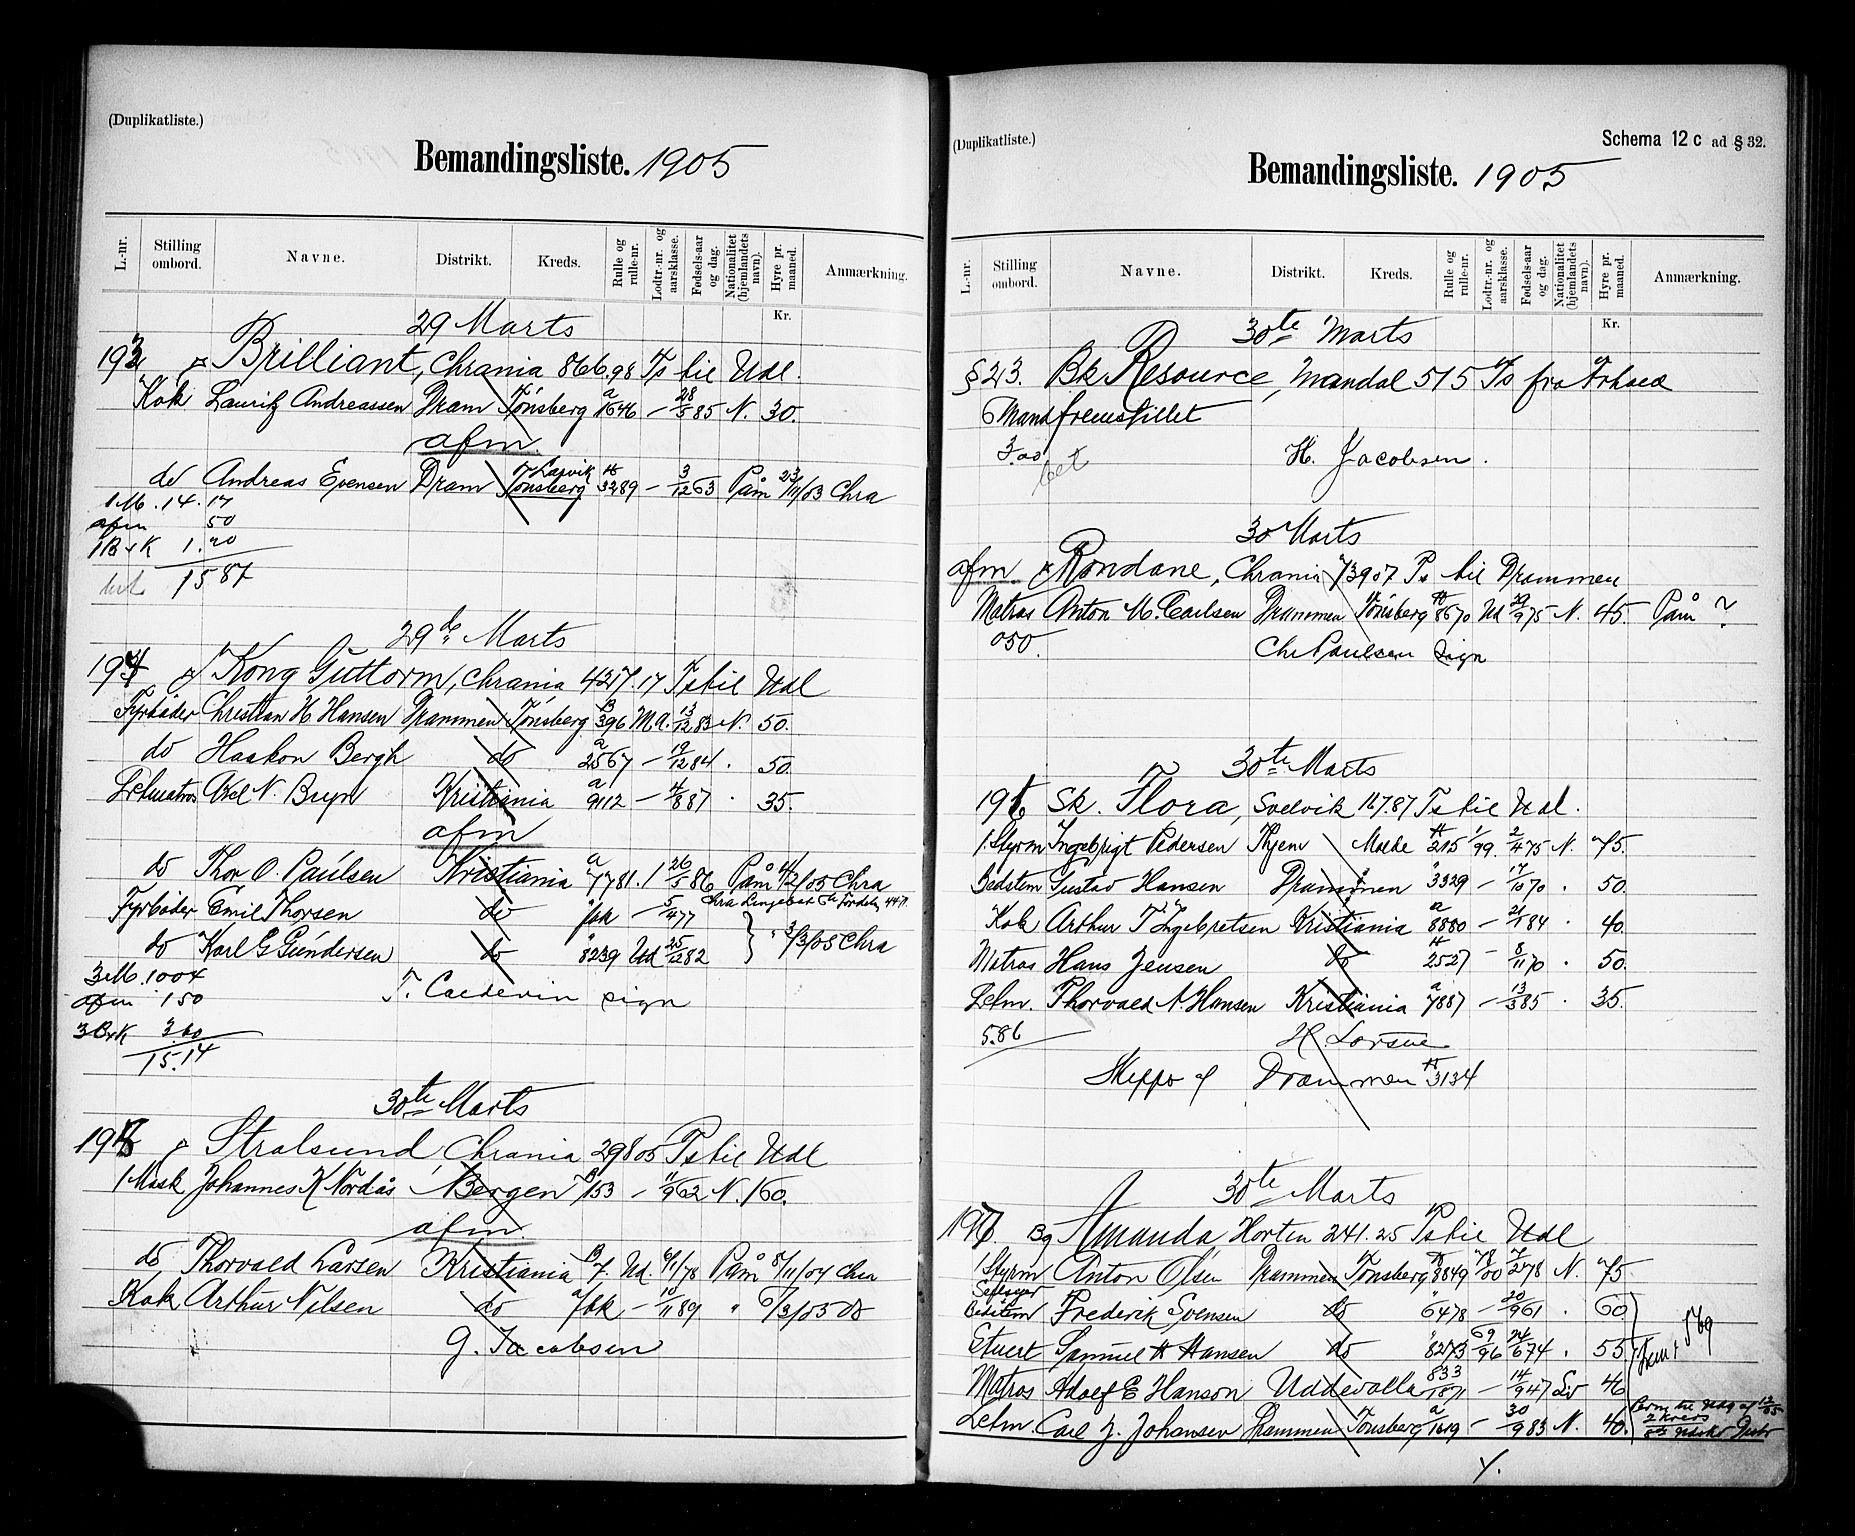 (Duplikatliste.)
Bemandingsliste. 1905
L.-nr. Stilling ombord. Navne. Distrikt. Kreds. Rulle og rulle-nr. Lodtr.-nr. og aarsklasse. Fødsels-aar og dag. Nationalitet (hjemlandets navn). Hyre pr. maaned. Anmærkning.
Kr.
29 Marts
Brilliant, Chrania 866.98 Ts til Udl.
Kok Lauritz Andreassen Dram Tönsberg a 1646 – 28/5 85 N. 30.
afm.
do Andreas Evensen Dram Larvik Tönsberg 3289 – 3/12 63 Påm 23/11/03 Chra
1 M. 14.17
afm 50
1 B+K 1.20
15 87
29de Marts
Kong Guttorm, Chrania 4217.17 Ts til Udl
Fyrböder Christian H Hansen Drammen Tönsberg B 396 M.A. 13/12 83 N. 50.
do Haakon Bergh do a 2567 – 19/12 84 . 50.
Letmatros Axel N. Bryn Kristiania a 9112 – 4/8 87 . 35.
afm
do Thor O. Paulsen Kristiania a 7781. 1 26/5 86 Påm 4/2/05 Chra
Fyrböder Emil Thorsen do fbk – 5/4 77
do Karl G Gundersen do 8239 Ud 25/12 82 3/3/05 Chra
3 M. 1004
afm 150
3 B+K 3.60
15.14
T. Calderin sign
30te Marts
Stralsund, Chrania 298 05 Ts til Udl
1 Mask Johannes K Nordås Bergen 153 – 11/9 62 N. 160.
afm.
do Thorvald Larsen Kristiania B 7. Ud. 6/1/78 Påm 8/11/04 Chra
Kok Arthur Nilsen do fbk – 10/11 89 " 6/3/05 do
G. Jacobsen
(Duplikatliste.)
Schema 12 c ad § 32.
Bemandingsliste. 1905
L.-nr. Stilling ombord. Navne. Distrikt. Kreds. Rulle og rulle-nr. Lodtr.-nr. og aarsklasse. Fødsels-aar og dag. Nationalitet (hjemlandets navn). Hyre pr. maaned. Anmærkning.
Kr.
30te Marts
§ 23. Bk Resource, Mandal 515 Ts fra
6 Mand fremstillet
3.00
bet
H. Jacobsen.
30 Marts
afm Rondane, Chrania 739 07 Ts til Drammen
Matros Anton M. Carlsen Drammen Tönsberg 8670 Ud 29/9 75 N. 45. Påm ?
050.
Chr Paulsen sign
30te Marts
196 Sk. Flora, Svelvik 167.87 Ts til Udl.
1. Styrm Ingebrigt Pedersen Thjem Molde 215 1/99. 2/4 75 N. 75.
Bedstem Gustav Hansen Drammen 3329 – 17/10 70 . 50.
Kok Arthur T Ingebretsen Kristiania a 8880 – 21/1 84 . 40.
Matros Hans Jensen do 2527 – 8/11 70 . 50.
Letm. Thorvald A. Hansen Kristiania a 7887 – 13/3 85 . 35.
5.86
H. Lorsue
Skipper af Drammen 3134
30te Marts
197. Bg Amanda Horten 241.25 Ts til Udl
1 Styrm Anton Olsen Drammen Tönsberg 8849 78/00 7/2 78 N. 75.
Seilsyer
Bedstem Frederik Svensen do 6478 – 20/9 61 . 60
Stuert Samuel H Hansen do 8273 69/96 24/6 74 . 55
Matros Adolf E Hanson Uddevalla 833/1871 – 14/9 47 Sv 46
Letm. Carl J. Johansen Drammen Tönsberg a 1619 – 30/9 83 N. 40.